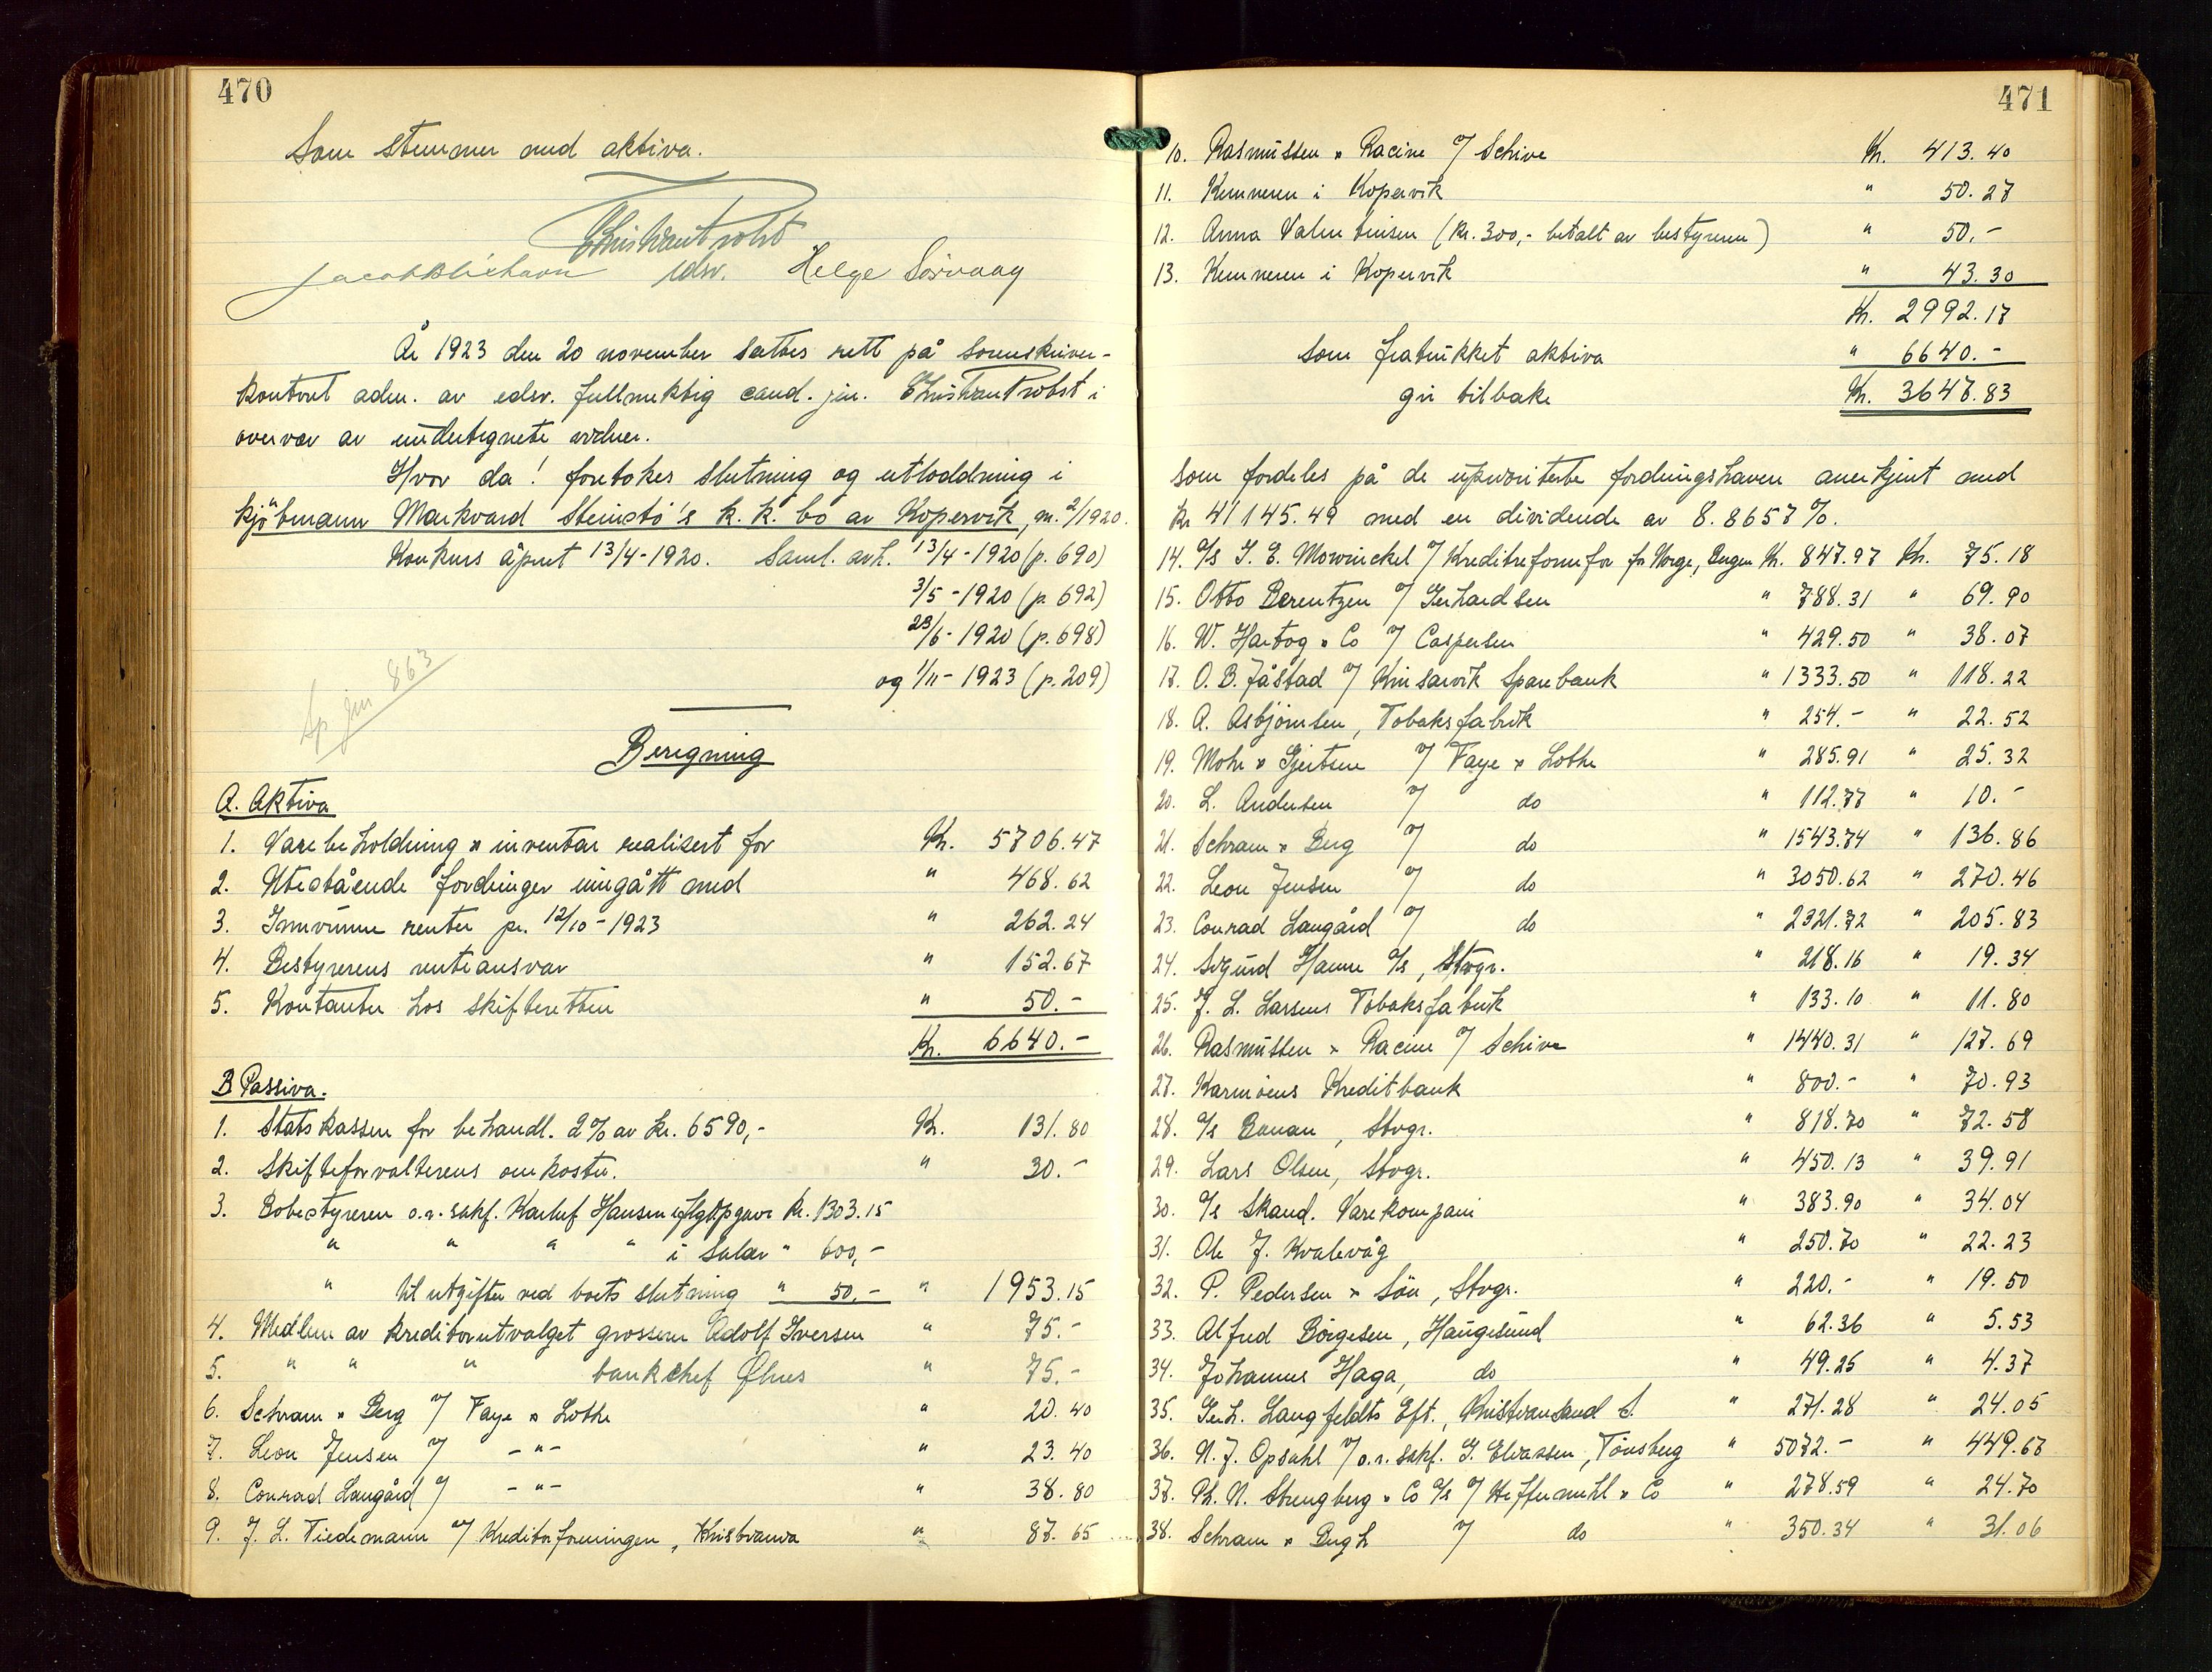 470
Som stemmer med aktiva.
Christian Probst
edsv. Helge Sörvaag
År 1923 den 20 november sattes rett på sorenskriver-
kontoret adm. av edsv. fullmektig cand. jur. Christian Probst i
overvær av undertegnete vidner.
Hvor da! foretokes slutning og utloddning i
kjöbmann Markvard Steinstö's k.k. bo av Kopervik, nr. 2/1920.
Konkurs åpnet 13/4-1920. Saml. avh. 13/4-1920 (p. 690)
3/5-1920 (p. 692)
23/6-1920 (p. 698)
og 1/11-1923 (p. 209)
863
Beregning
A. Aktiva
1. Varebeholdning & inventar realisert for Kr. 5706.47
2. Utestående fordringer inngått med " 468.62
3. Innvunne renter pr. 12/10-1923 " 262.24
4. Bestyrerens renteansvar " 152.67
5. Kontanter hos skifteretten " 50.-
Kr. 6640.-
B Passiva.
1. Statskassen for behandl. 2% av kr. 6590,- Kr. 131.80
2. Skifteforvalterens omkostn. " 30.-
3. Bobestyreren o.r. sakf. Karluf Hansen iflg. opgave kr. 1303.15
" " " " i salær " 600,-
" til utgifter ved boets slutning " 50,- " 1953.15
4. Medlem av kreditorutvalget grosserer Adolf Iversen " 75.-
5. " " " bankchef Øhus " 75.-
6. Schram & Berg v/ Faye & Lothe " 20.40
7. Leon Jensen v/ -"- " 23.40
8. Conrad Langård v/ -"- " 38.80
9. J. L. Tiedemann v/ Kreditorforeningen, Kristiania " 87.65
471
10. Rasmussen & Racine v/ Schive Kr. 413.40
11. Kemneren i Kopervik " 50.27
12. Anna Valentinsen (kr. 300,- betalt av bestyreren) " 50.-
13. Kemneren i Kopervik " 43.30
Kr. 2992.17
som fratrukket aktiva " 6640.-
gir tilbake Kr. 3647.83
som fordeles på de uprioriterte fordringshavere anerkjent med
kr 41145.49 med en dividende av 8.8657%.
14. A/s J. E. Mowinckel v/ Kreditreformfor. for Norge, Bergen Kr. 847.97 Kr. 75.18
15. Otto Berentzen v/ Gerhardsen " 788.31 " 69.90
16. W. Hartog & Co v/ Caspersen " 429.50 " 38.07
17. O. B. Jåstad v/ Kinsarvik Sparebank " 1333.50 " 118.22
18. A. Asbjørnsen, Tobaksfabrik " 254.- " 22.52
19. Mohr & Gjertsen v/ Faye & Lothe " 285.91 " 25.32
20. L. Andersen v/ do " 112.77 " 10.-
21. Schram & Berg v/ do " 1543.74 " 136.86
22. Leon Jensen v/ do " 3050.62 " 270.46
23. Conrad Langård v/ do " 2321.72 " 205.83
24. Sigurd Hamre A/s, Stvgr. " 218.16 " 19.34
25. J. L. Larsens Tobaksfabrik " 133.10 " 11.80
26. Rasmussen & Racine v/ Schive " 1440.31 " 127.69
27. Karmöens Kreditbank " 800.- " 70.93
28. A/s Banan, Stvgr. " 818.70 " 72.58
29. Lars Olsen, Stvgr. " 450.13 " 39.91
30. A/s Skand. Varekompani " 383.90 " 34.04
31. Ole J. Kvalevåg " 250.70 " 22.23
32. P. Pedersen & Sön, Stvgr. " 220.- " 19.50
33. Alfred Börgesen, Haugesund " 62.36 " 5.53
34. Johannes Haga, do " 49.25 " 4.37
35. Gerh. Langfeldts Eft., Kristiansand S. " 271.28 " 24.05
36. N. J. Opsahl v/ o.r. sakf. G. Eliassen, Tönsberg " 5072.- " 449.67
37. Ph. N. Strengberg & Co A/s v/ Heffermehl & Co " 278.59 " 24.70
38. Schram & Bergh v/ do " 350.34 " 31.06